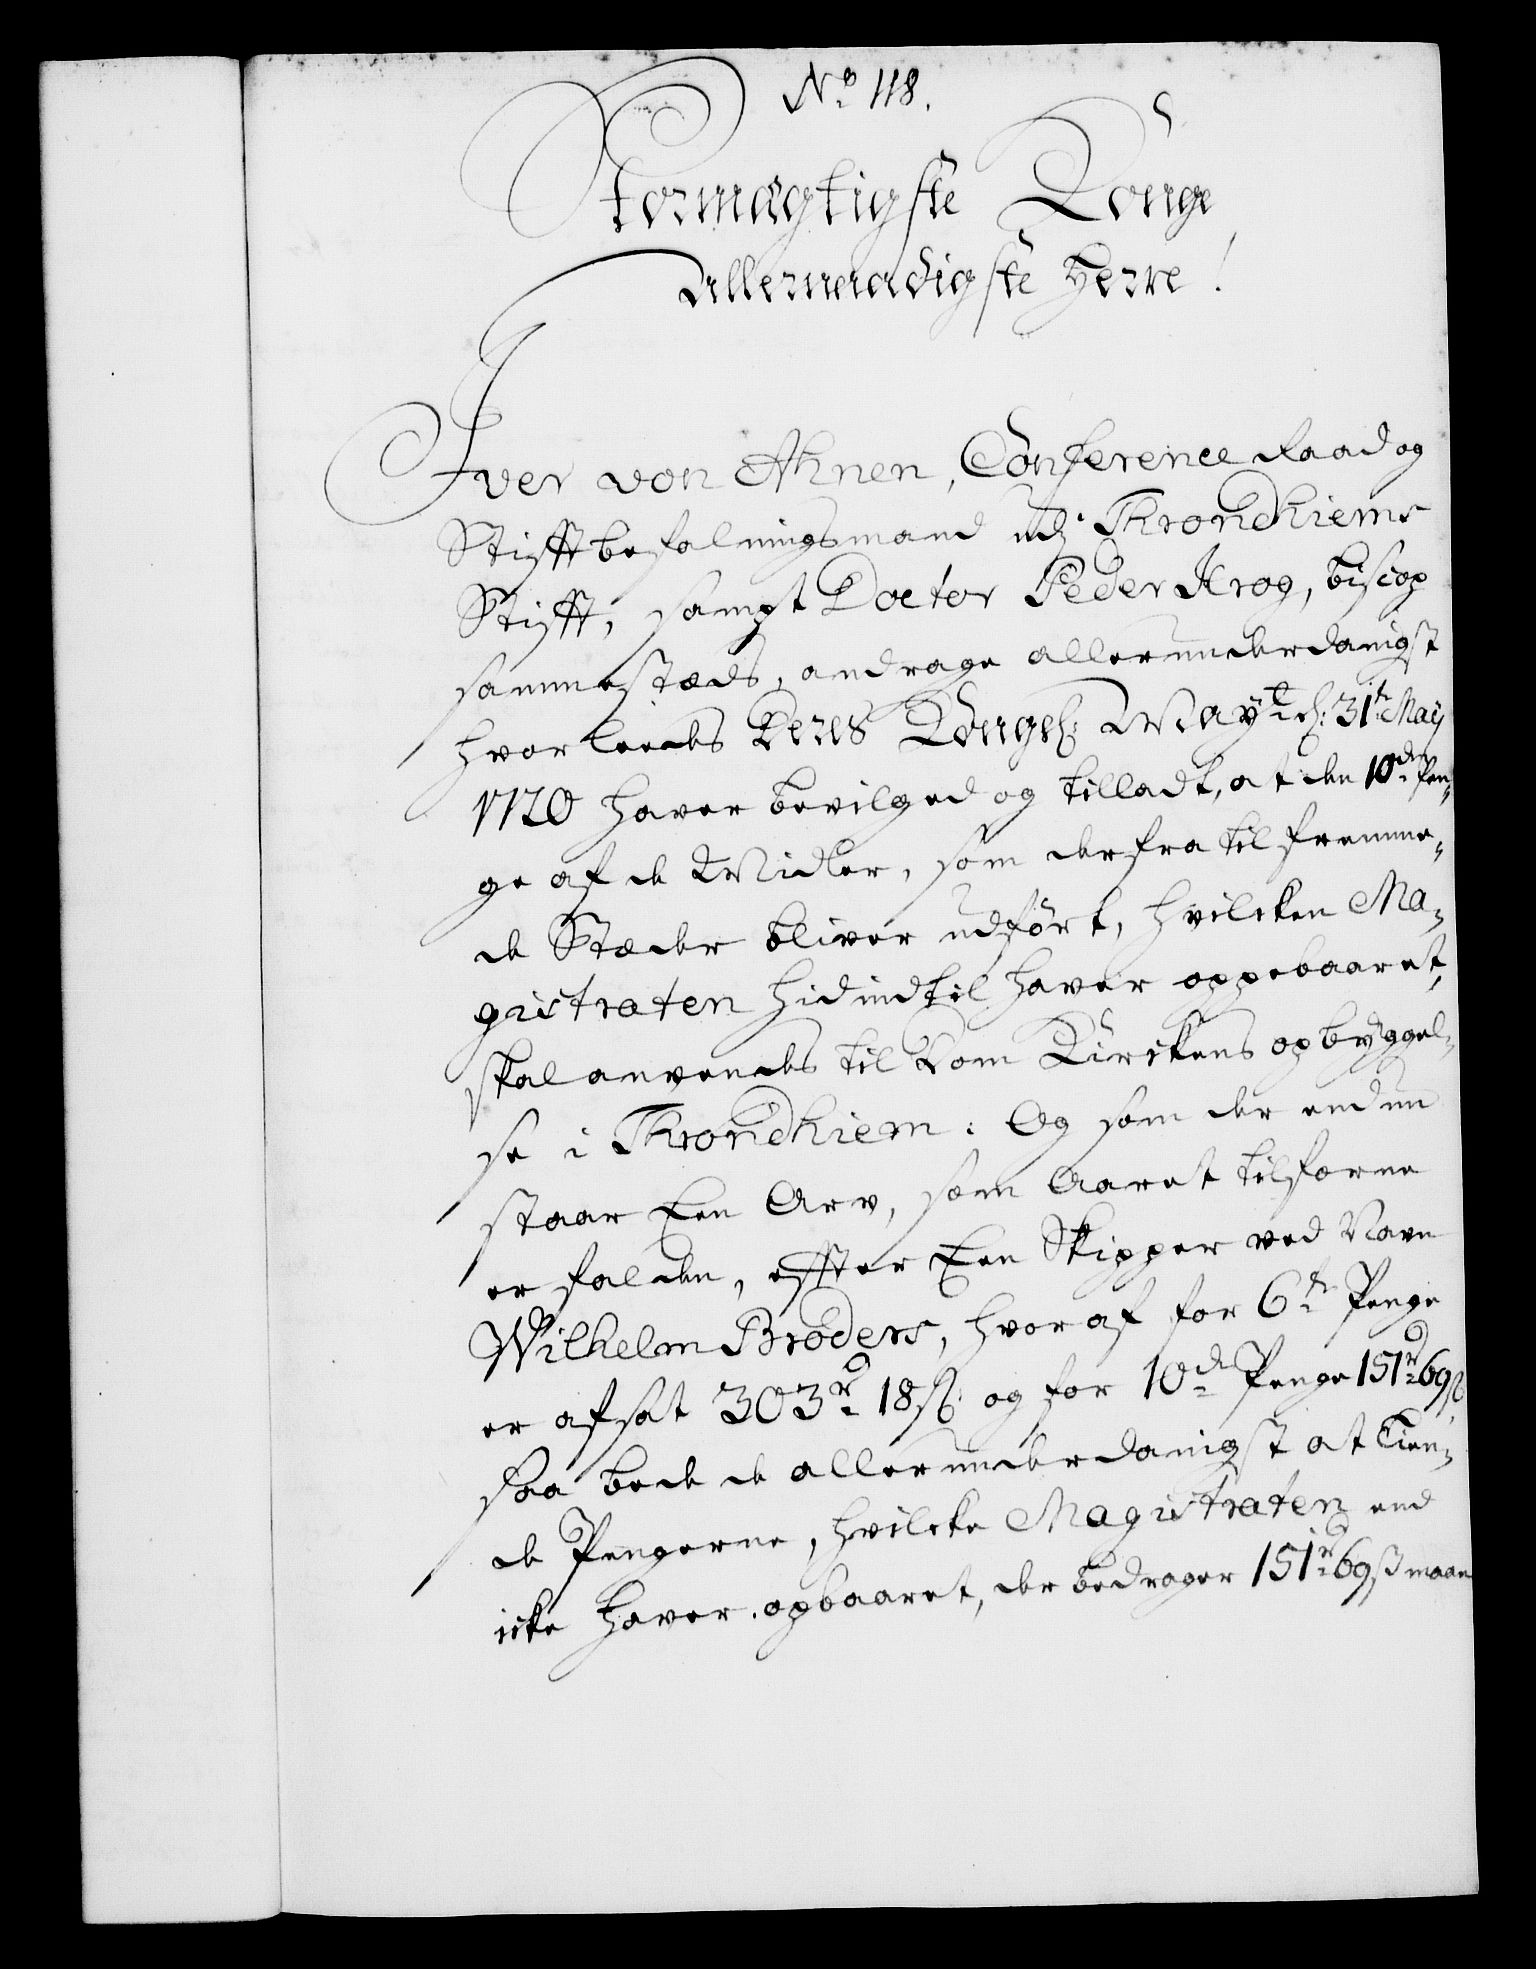 No 118.
Stormægtigste Konge
Allernaadigste Herre!
Iver von Ahnen, Conference Raad og
Stifftbefalningsmand udj Throndhiems
Stifft, sampt Doctor Peder Krog, biscop
sammestæds, andrage allerunderdanigst
hvorleedes Deres Kongel: Mayt d: 31te Maij
1720 haver bevilged og tilladt, at den 10de Pen„
ge af de Midler, som derfra til fremme„
de Stæder bliver udført, hvilcken Ma„
gistraten hidindtil haver oppebaaret,
skal anvendes til Dom Kirckens opbyggel„
se i Throndhiem: Og som der endnu
staar Een Arv, som Aaret tilforne
er falden, effter Een Skipper ved Navn
Wilhelm Broders, hvoraf for 6te Penge
er afsat 303rd 18ß og for 10de Penge 151rd 69ß
saa bede de allerunderdanigst at Tien„
de Pengerne, hvilcke Magistraten end
icke haver opbaaret, der bedrager 151rd 69ß maae